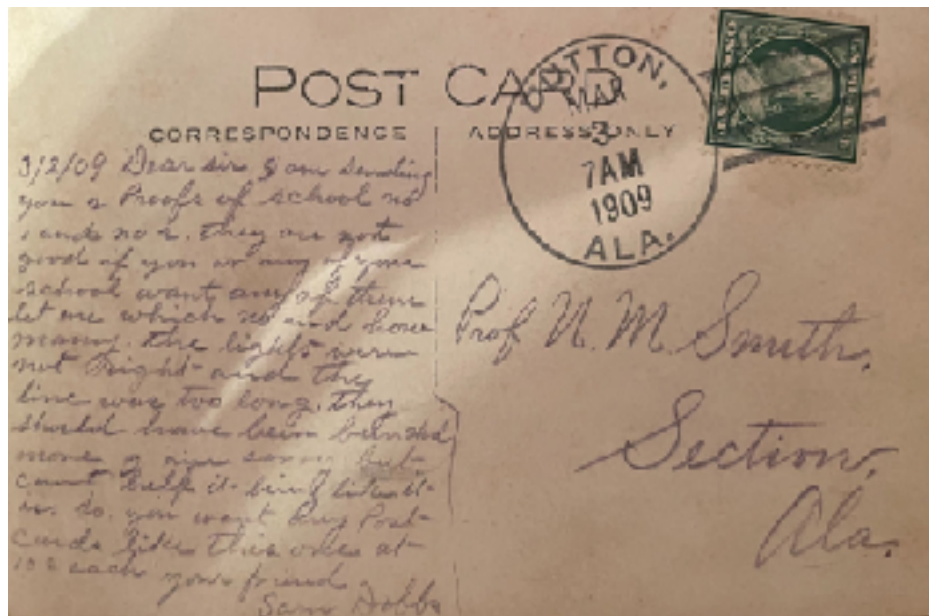 POST CARD
CORRESPONDENCE
ADDRESS ONLY
DUTTON,
MAR
3
7AM
1909
ALA.
3/2/09 Dear sir I am sending
you 2 Proofs of school no
1 and no 2. they are not
good if you or any of your
school want any of them
let me which no and how
many. the lights were
not right and the
line was too long. they
should have been bunched
more
cant help it being like it
is. do you want any Post
cards like this one at
10¢ each your friend
Sam Hobbs
Prof N. M. Smith,
Section,
Ala.